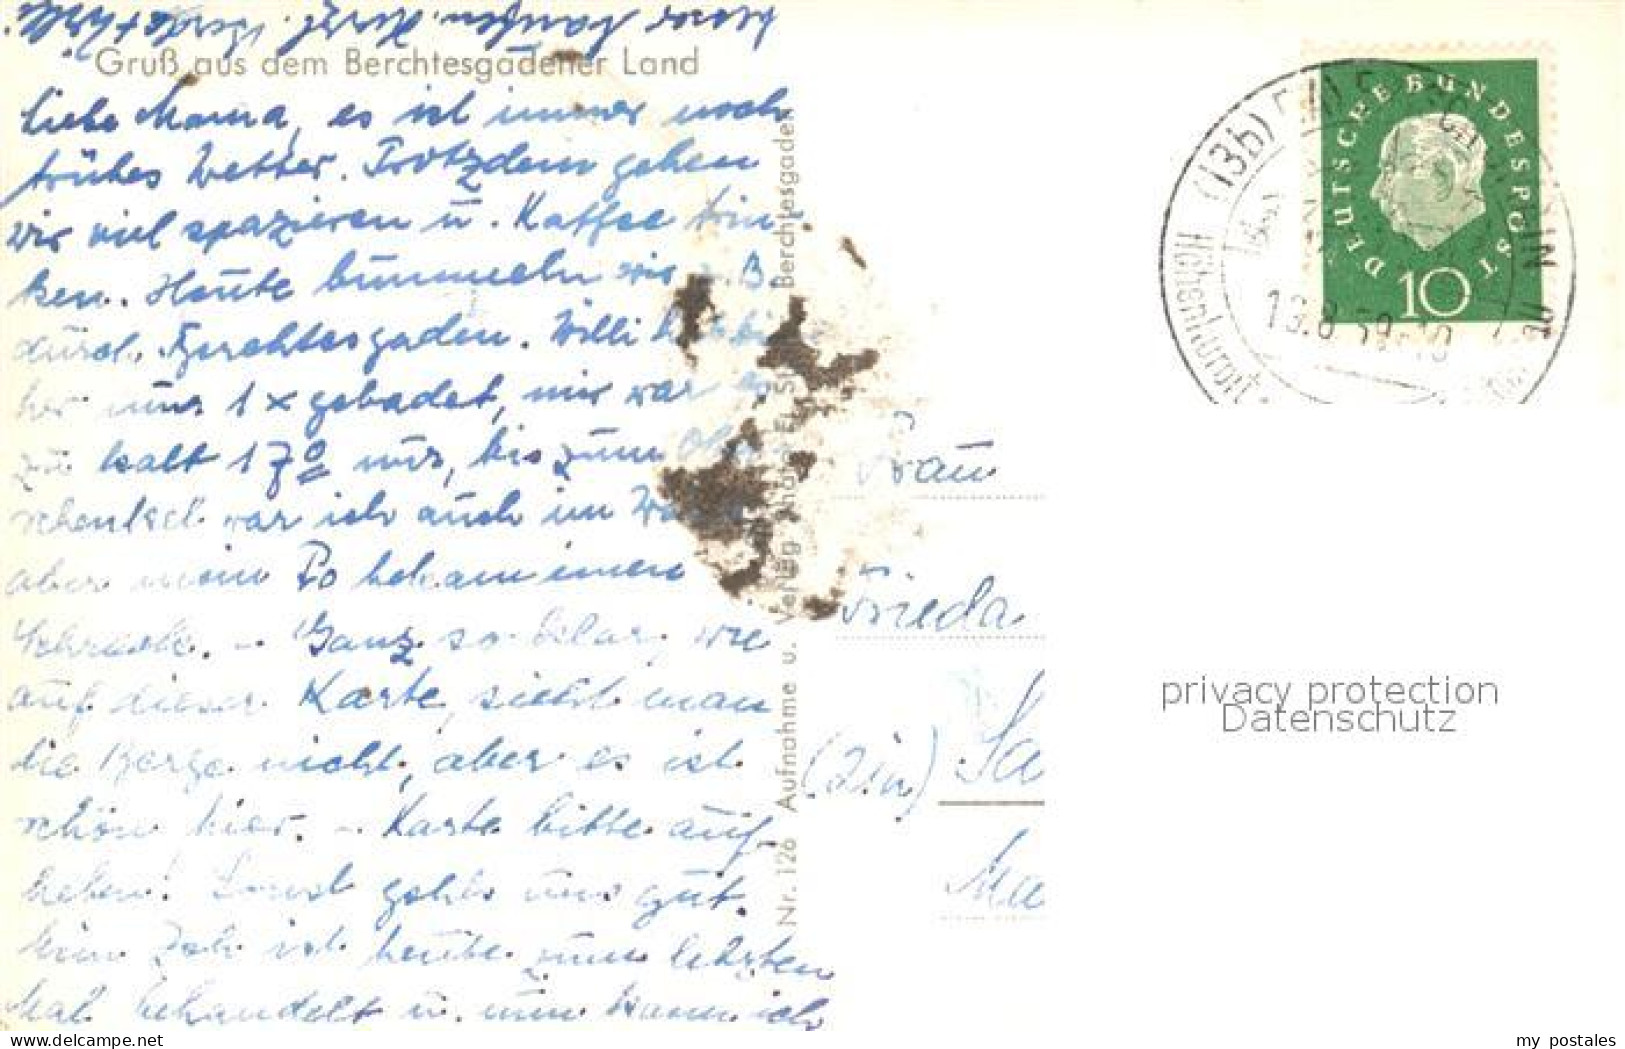 Gruß aus dem Berchtesgadener Land
Liebe Mama, es ist immer noch
trübes Wetter. Trotzdem gehen
wir viel spazieren u. Kaffee trin-
ken. Heute bummeln wir z. B.
durch Berchtesgaden. Willi hat bis
her nur 1 x gebadet, mir war es
zu kalt 17° nur, bis zum Ober
schenkel war ich auch im Wasser
aber mein Po bekam einen
Schreck. - Ganz so klar, wie
auf dieser Karte, sieht man
die Berge nicht, aber es ist
schön hier. - Karte bitte auf-
heben! Sonst geht's uns gut.
Mein Zeh ist heute zum letzten
Mal behandelt u. nun kann ich
besser laufen. Herzl. Gerda + Willi.
Nr. 126 Aufnahme u. Verlag Berchtesgaden
Frau
Frieda
Sa
Ma
DEUTSCHE BUNDESPOST
10
(13b)
13.8.59-18
privacy protection
Datenschutz
my postales
www.delcampe.net